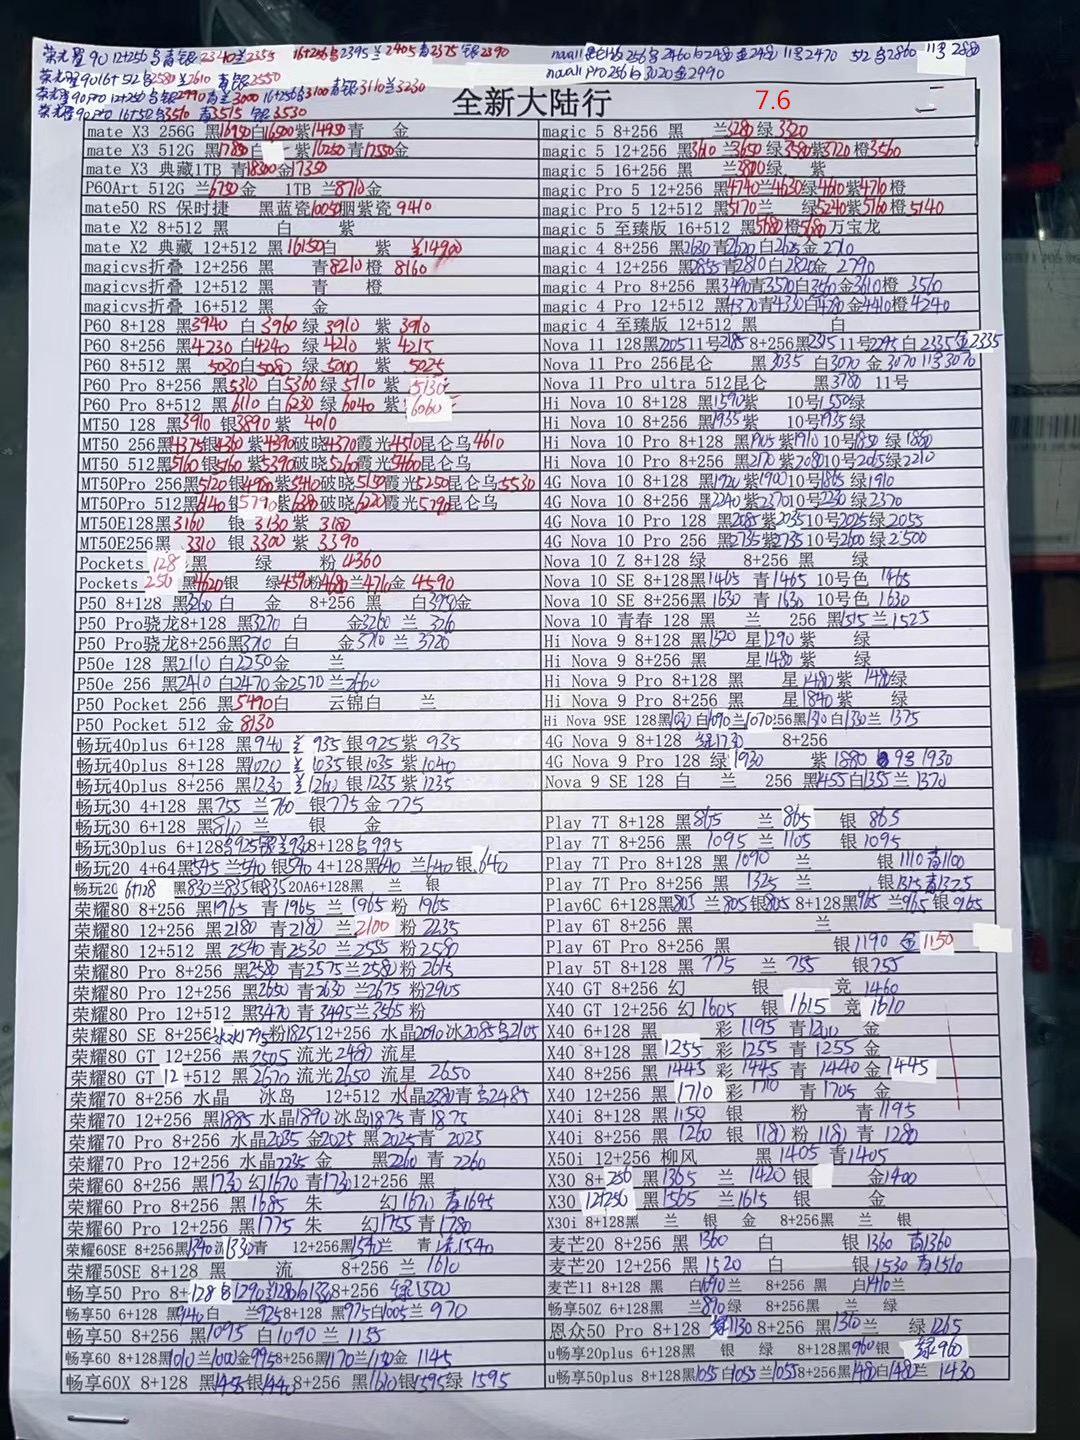 荣耀90 12+256乌青银2340兰2355 16+256乌2395兰2405青2375银2390 nova11昆仑 256乌2460白2480金2480 11号2470 512乌2860 11号2880
荣耀90 16+512乌2580兰2610青银2550 nova11 pro 256乌3020金2990
荣耀90pro 12+256乌银2990青兰3000 16+256乌3100青银3110兰3230
荣耀90pro 16+512乌3510 青3515 银3530
全新大陆行 7.6
mate X3 256G 黑16950白16500紫14950青 金
mate X3 512G 黑 白 紫16250青17550金
mate X3 典藏1TB 青18300金17350
P60Art 512G 兰6750金 1TB 兰8710金
mate50 RS 保时捷 黑蓝瓷10050胭紫瓷 9410
mate X2 8+512 黑 白 紫
mate X2 典藏 12+512 黑16150白 紫 兰14900
magicvs折叠 12+256 黑 青8210橙 8160
magicvs折叠 12+512 黑 青 橙
magicvs折叠 16+512 黑 金
P60 8+128 黑3940 白 3960 绿 3910 紫 3910
P60 8+256 黑4230 白4240 绿 4210 紫 4215
P60 8+512 黑 5030白5080 绿 5000 紫 5025
P60 Pro 8+256 黑5310 白5360绿 5110 紫 5130
P60 Pro 8+512 黑6110 白6230 绿 6040 紫 6060
MT50 128 黑3910 银3890 紫 4010
MT50 256黑4375银4360 紫4390破晓4370霞光4510昆仑乌4610
MT50 512黑5160 银5160 紫5390破晓5260霞光5460昆仑乌
MT50Pro 256黑5120 银4980紫5410破晓5150霞光5250昆仑乌5530
MT50Pro 512黑6140 银5790紫6380破晓6220霞光5790昆仑乌
MT50E128黑3160 银 3130 紫 3180
MT50E256黑 3310 银 3300 紫 3390
Pockets 128 黑 绿 粉 4360
Pockets 256 黑4620银 绿4590粉4680兰4710金 4590
P50 8+128 黑3260 白 金 8+256 黑 白3950金
P50 Pro骁龙8+128黑3270 白 金3260 兰 326
P50 Pro骁龙8+256黑3710 白 金3710 兰 3720
P50e 128 黑2110 白2250金 兰
P50e 256 黑2410 白2470 金2570 兰2660
P50 Pocket 256 黑5490白 云锦白 兰
P50 Pocket 512 金 8130
畅玩40plus 6+128 黑940 兰 935 银925紫 935
畅玩40plus 8+128 黑1020 兰1035银1035 紫1040
畅玩40plus 8+256 黑1230 兰1260 银1235紫1235
畅玩30 4+128 黑755 兰760 银775金 775
畅玩30 6+128 黑810 兰 银 金
畅玩30plus 6+128乌925银兰 8+128乌995
畅玩20 4+64黑545 兰540 银540 4+128黑640 兰640银 640
畅玩20 6+128 黑830兰835银835 20A6+128黑 兰 银
荣耀80 8+256 黑1965 青1965 兰1965粉 1965
荣耀80 12+256 黑2180 青2180 兰2100 粉2235
荣耀80 12+512 黑 2540青2530 兰2555粉2580
荣耀80 Pro 8+256 黑2580 青2575兰2580粉2615
荣耀80 Pro 12+256 黑2650 青2630 兰2675 粉2905
荣耀80 Pro 12+512 黑3470 青3495兰3565粉
荣耀80 SE 8+256冰水1795粉1825 12+256 水晶2090冰2085乌2105
荣耀80 GT 12+256 黑2505 流光2480 流星
荣耀80 GT 12+512 黑2670 流光2650 流星 2650
荣耀70 8+256 水晶 冰岛 12+512 水晶2380青乌2485
荣耀70 12+256 黑1885 水晶1890 冰岛1875青1875
荣耀70 Pro 8+256 水晶2035 金2025 黑2025青 2025
荣耀70 Pro 12+256 水晶2235 金 黑2260青 2260
荣耀60 8+256 黑1730 幻1670 青1730 12+256 黑
荣耀60 Pro 8+256 黑1685 朱 幻1670 青1695
荣耀60 Pro 12+256 黑1775 朱 幻1755青1780
荣耀60SE 8+256黑1340 流1330青 12+256黑1540兰 青流1540
荣耀50SE 8+128 黑 流 8+256 兰1610
畅享50 Pro 8+128乌1290兰1280白1330 8+256 绿1500
畅享50 6+128 黑940白 兰925 8+128 黑975白1005兰 970
畅享50 8+256 黑1095 白1090 兰 1135
畅享60 8+128黑1010兰1000金995 8+256黑1170兰1150金 1145
畅享60X 8+128 黑1455银1440 8+256 黑1610银1595绿 1595
magic 5 8+256 黑 兰3280 绿 3320
magic 5 12+256 黑3610 兰3650 绿3580紫3720 橙3560
magic 5 16+256 黑 兰3800绿 紫
magic Pro 5 12+256 黑4740兰4630绿4610紫4710橙
magic Pro 5 12+512 黑5170兰 绿5240紫5160橙5140
magic 5 至臻版 16+512 黑5680橙5680万宝龙
magic 4 8+256 黑2630青2620白2625金 2710
magic 4 12+256 黑2855青2810白2820金 2790
magic 4 Pro 8+256 黑3490青3570白3560金3610橙 3560
magic 4 Pro 12+512 黑4370青4330白4780金4410橙4240
magic 4 至臻版 12+512 黑 白
Nova 11 128黑2205 11号2185 8+256黑2315 11号2295白2335金2335
Nova 11 Pro 256昆仑 黑3035 白3070 金 3070 11号3070
Nova 11 Pro ultra 512昆仑 黑3780 11号
Hi Nova 10 8+128 黑1590紫 10号1550绿
Hi Nova 10 8+256 黑1935紫 10号1935绿
Hi Nova 10 Pro 8+128 黑1905紫1910 10号1850 绿1880
Hi Nova 10 Pro 8+256 黑2170紫2080 10号2065绿2210
4G Nova 10 8+128 黑1920 紫1900 10号1865 绿1910
4G Nova 10 8+256 黑2240 紫2370 10号2230 绿2370
4G Nova 10 Pro 128 黑2085紫2035 10号2025绿2055
4G Nova 10 Pro 256 黑2735紫2735 10号2600 绿2500
Nova 10 Z 8+128 绿 8+256 黑 绿
Nova 10 SE 8+128黑1465 青1465 10号色 1465
Nova 10 SE 8+256黑1630 青 1630 10号色 1630
Nova 10 青春 128 黑 兰 256 黑1515兰1525
Hi Nova 9 8+128 黑1320 星1290紫 绿
Hi Nova 9 8+256 黑 星1480紫 绿
Hi Nova 9 Pro 8+128 黑 星1480紫 1480绿
Hi Nova 9 Pro 8+256 黑 星1840紫 绿
Hi Nova 9SE 128黑1030白1090兰1070 256黑1310白1330兰 1375
4G Nova 9 8+128 绿1730 8+256
4G Nova 9 Pro 128 绿1930 紫1880 9号1930
Nova 9 SE 128 白 兰 256 黑1455白1355兰1370
Play 7T 8+128 黑865 兰865 银 865
Play 7T 8+256 黑 1095 兰1105 银1095
Play 7T Pro 8+128 黑1090 兰 银1110青1100
Play 7T Pro 8+256 黑 1325 兰 银1315青1325
Play6C 6+128黑805 兰805银805 8+128黑965 兰965银965
Play 6T 8+256 黑 兰
Play 6T Pro 8+256 黑 银1190 金1150
Play 5T 8+128 黑775 兰755 银755
X40 GT 8+256 幻 银 竞 1460
X40 GT 12+256 幻1605 银 1615 竞1610
X40 6+128 黑 彩1195 青1200 金
X40 8+128 黑1255 彩1255 青1255 金
X40 8+256 黑1445 彩1445 青1440金1445
X40 12+256 黑1710 彩1710 青1705 金
X40i 8+128 黑1150 银 粉 青1195
X40i 8+256 黑1260 银1180粉1180青1280
X50i 12+256 柳风 黑1405青1405
X30 8+256 黑1365 兰1420 银 金1400
X30 12+256 黑1565 兰1615 银 金
X30i 8+128黑 兰 银 金 8+256黑 兰 银
麦芒20 8+256 黑1360 白 银1360 青1360
麦芒20 12+256 黑1520 白 银1530 青1510
麦芒11 8+128 黑 白1690兰 8+256 黑 白1410兰
畅享50Z 6+128黑 兰890绿 8+256黑 兰 绿
恩众50 Pro 8+128 绿1130 8+256 黑1310兰 绿1265
u畅享20plus 6+128黑 银 绿 8+128黑960银 绿960
u畅享50plus 8+128黑1055白1055兰1055 8+256黑1480白1480兰 1430